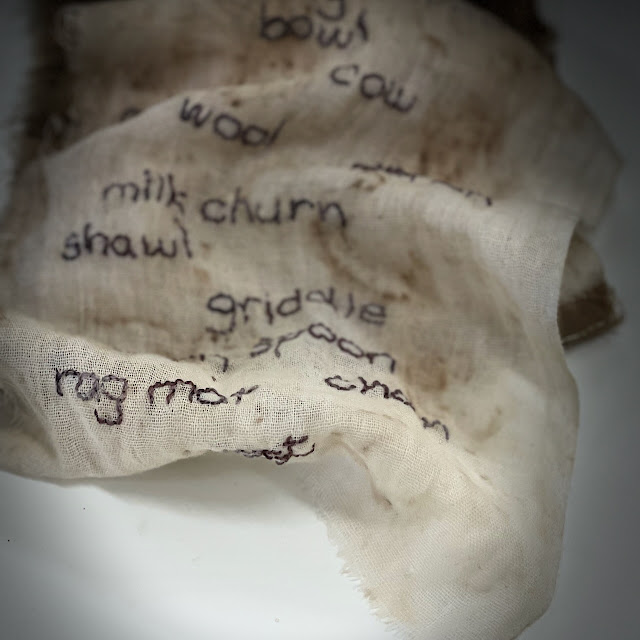 bowl
cow
wool
milk churn
shawl
griddle
spoon
rog mór